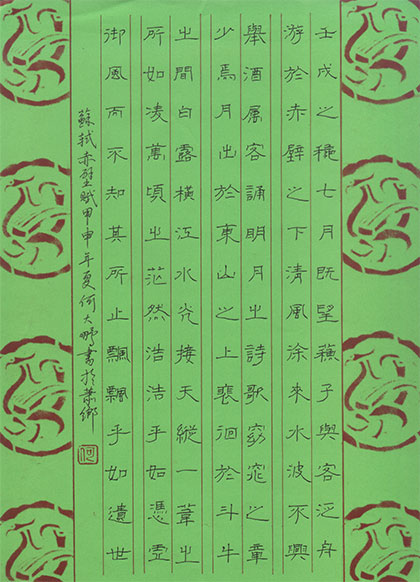 壬戌之穐七月既望蘇子與客泛舟
游於赤壁之下清風徐來水波不興
舉酒属客誦明月之詩歌窈窕之章
少焉月出於東山之上裴徊於斗牛
之間白露橫江水光接天縱一葦之
所如凌萬頃之茫然浩浩乎如憑虛
御風而不知其所止飄飄乎如遺世
蘇軾赤壁賦甲申年夏何大鵬書於鄉
何